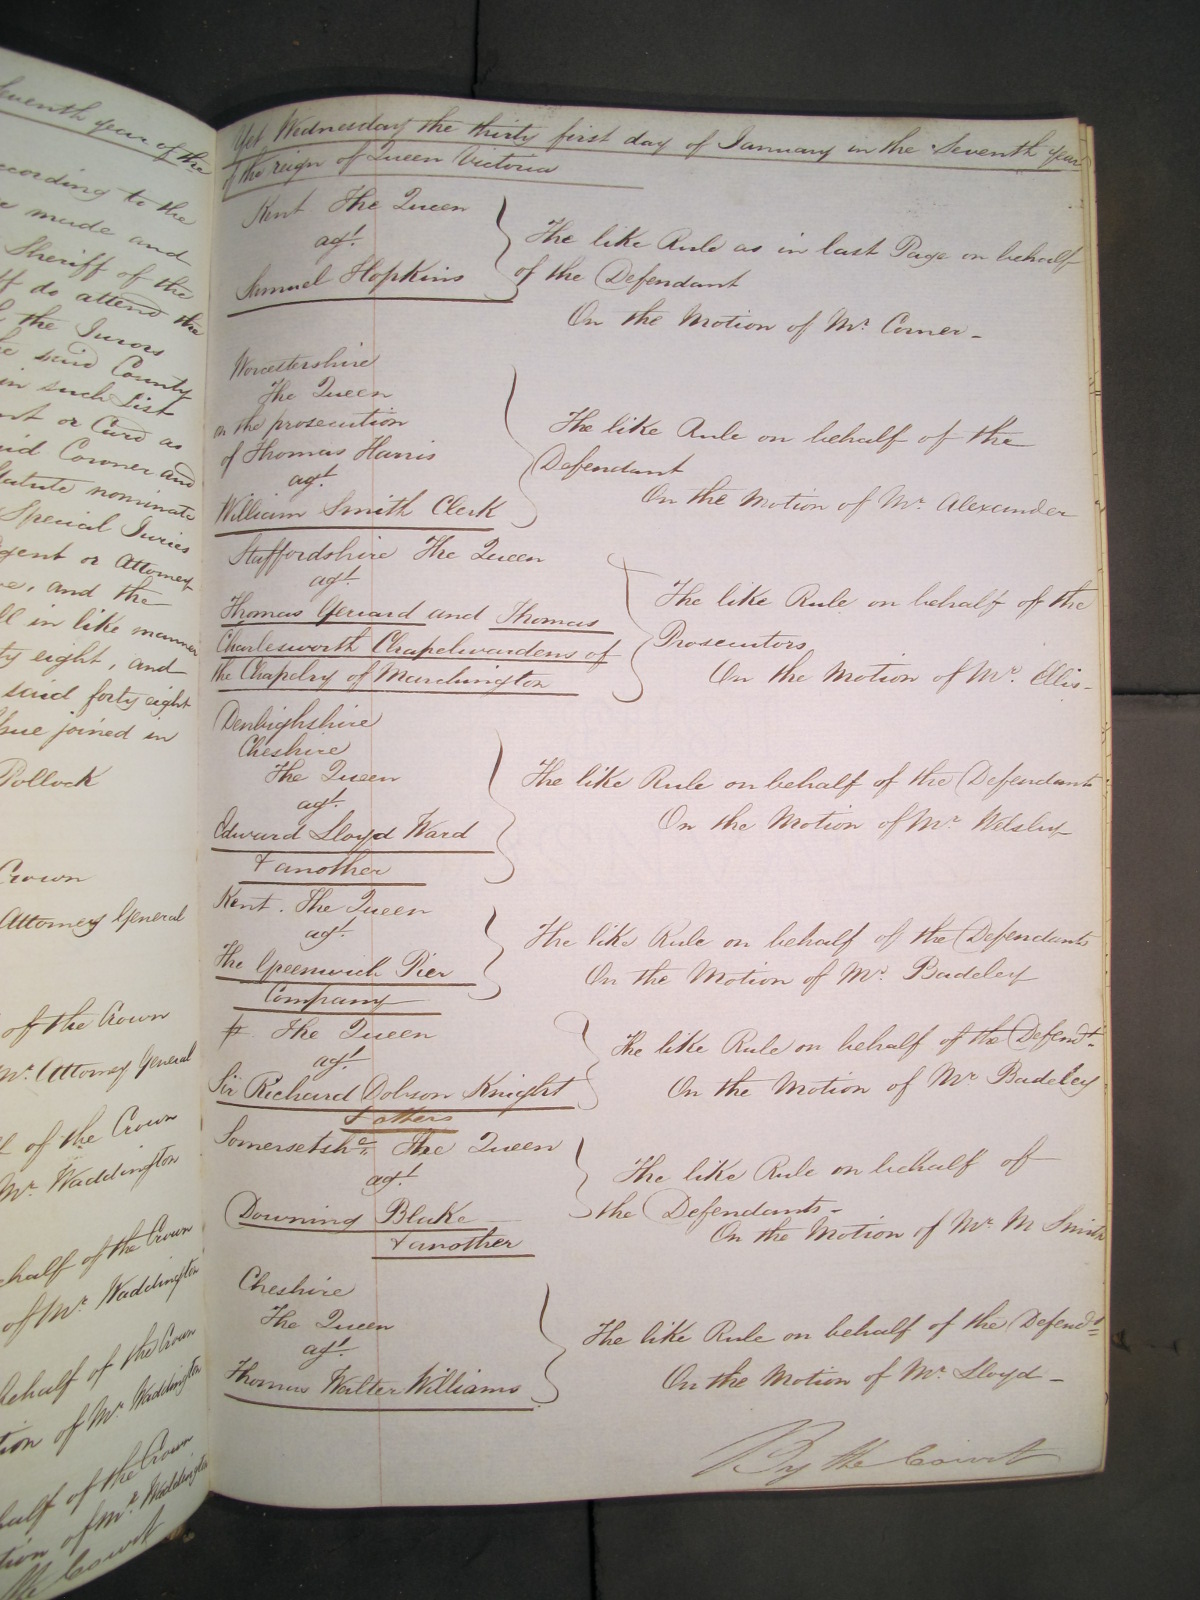 Seventh year of the
according to the
made and
Sheriff of the
do attend the
the Jurors
said County
in such List
or Card as
said Coroner and
Statute nominate
Special Juries
Agent or Attorney
and the
in like manner
forty eight, and
said forty eight
Issue joined in
Pollock
Crown
Attorney General
of the Crown
Mr. Attorney General
of the Crown
Mr. Waddington
behalf of the Crown
of Mr. Waddington
behalf of the Crown
Motion of Mr. Waddington
behalf of the Crown
Motion of Mr. Waddington
the Court
Yet Wednesday the thirty first day of January in the Seventh year
of the reign of Queen Victoria
Kent The Queen
agt.
Samuel Hopkins
The like Rule as in last Page on behalf
of the Defendant
On the Motion of Mr. Corner -
Worcestershire
The Queen
on the prosecution
of Thomas Harris
agt.
William Smith Clerk
The like Rule on behalf of the
Defendant
On the Motion of Mr. Alexander
Staffordshire The Queen
agt.
Thomas Gerrard and Thomas
Charlesworth Chapelwardens of
the Chapelry of Marchington
The like Rule on behalf of the
Prosecutors
On the Motion of Mr. Ellis -
Denbighshire
Cheshire
The Queen
agt.
Edward Lloyd Ward
& another
The like Rule on behalf of the Defendants
On the Motion of Mr. Welsby
Kent. The Queen
agt.
The Greenwich Pier
Company
The like Rule on behalf of the Defendants
On the Motion of Mr. Badeley
The Queen
agt.
Sir Richard Dobson Knight
& others
The like Rule on behalf of the Defendt.
On the Motion of Mr. Badeley
Somersetshe. The Queen
agt.
Downing Blake
& another
The like Rule on behalf of
the Defendants -
On the Motion of Mr. M Smith
Cheshire
The Queen
agt.
Thomas Walter Williams
The like Rule on behalf of the Defendt
On the Motion of Mr. Lloyd -
By the Court